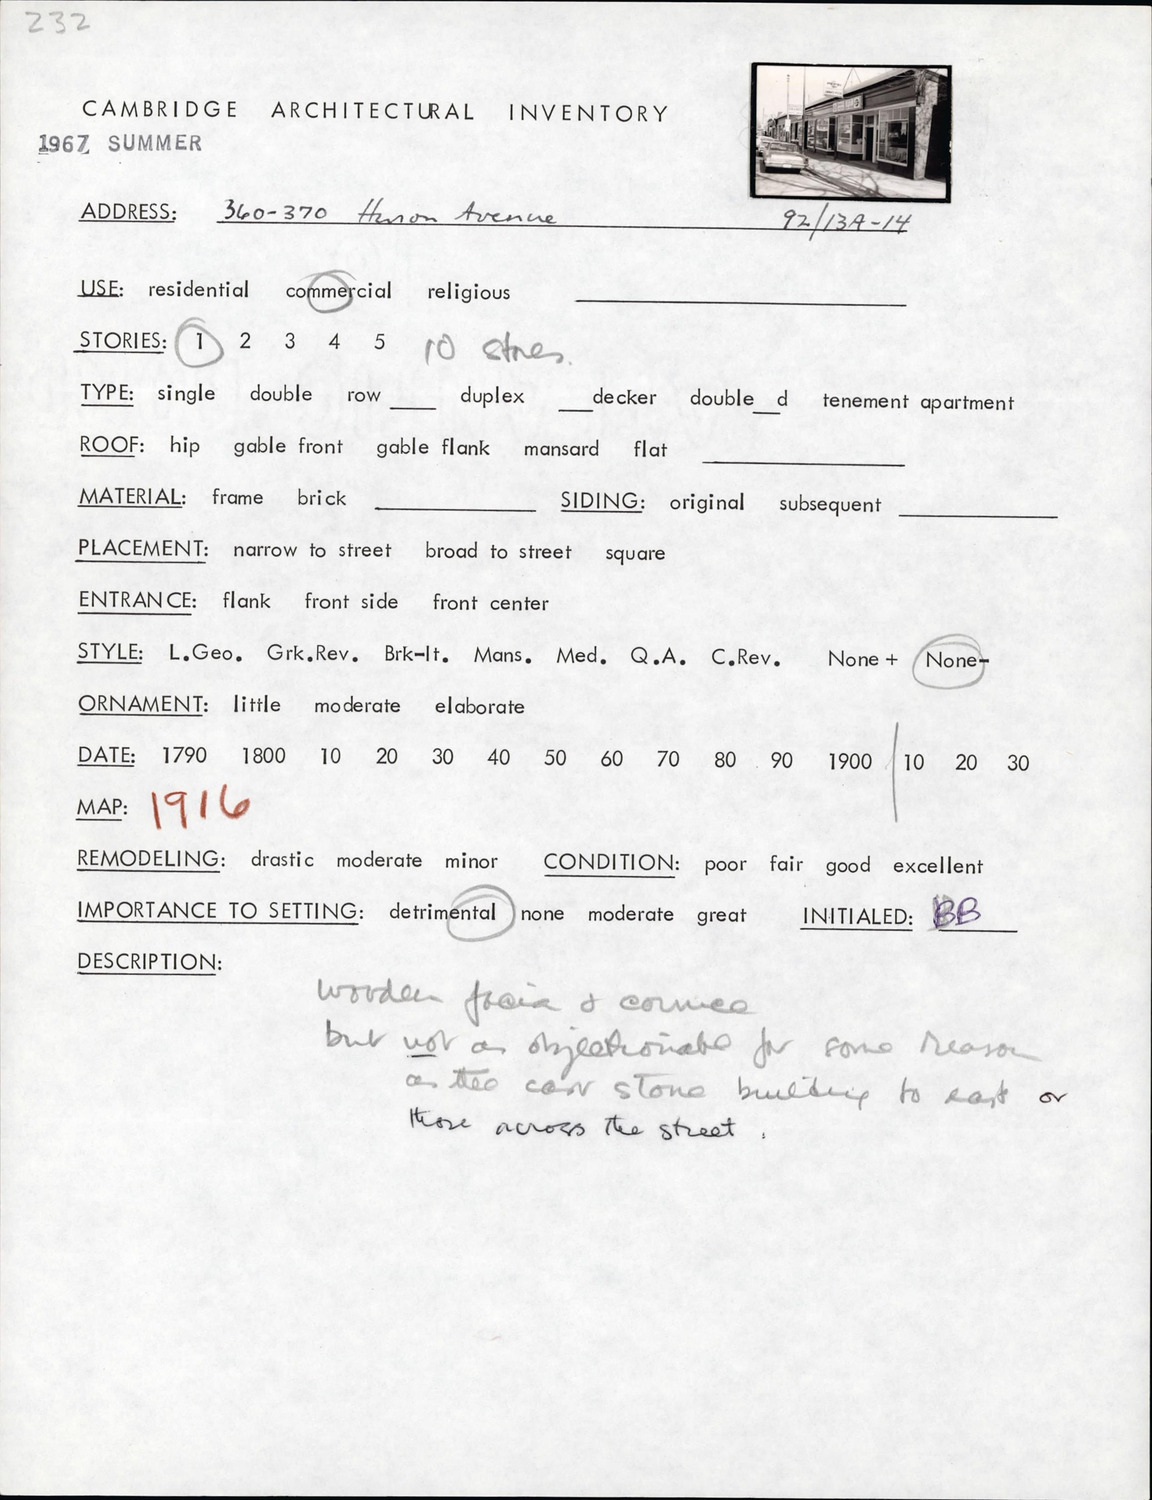 232
CAMBRIDGE ARCHITECTURAL INVENTORY
1967 SUMMER
ADDRESS: 360-370 Huron Avenue 92/13A-14
USE: residential commercial religious
STORIES: 1 2 3 4 5 10 stores.
TYPE: single double row ___ duplex ___decker double__d tenement apartment
ROOF: hip gable front gable flank mansard flat
MATERIAL: frame brick SIDING: original subsequent
PLACEMENT: narrow to street broad to street square
ENTRANCE: flank front side front center
STYLE: L.Geo. Grk.Rev. Brk-It. Mans. Med. Q.A. C.Rev. None + None-
ORNAMENT: little moderate elaborate
DATE: 1790 1800 10 20 30 40 50 60 70 80 90 1900 10 20 30
MAP: 1916
REMODELING: drastic moderate minor CONDITION: poor fair good excellent
IMPORTANCE TO SETTING: detrimental none moderate great INITIALED: BB
DESCRIPTION:
wooden facia & cornice
but not as objectionable for some reason
as the cast stone building to east or
those across the street.